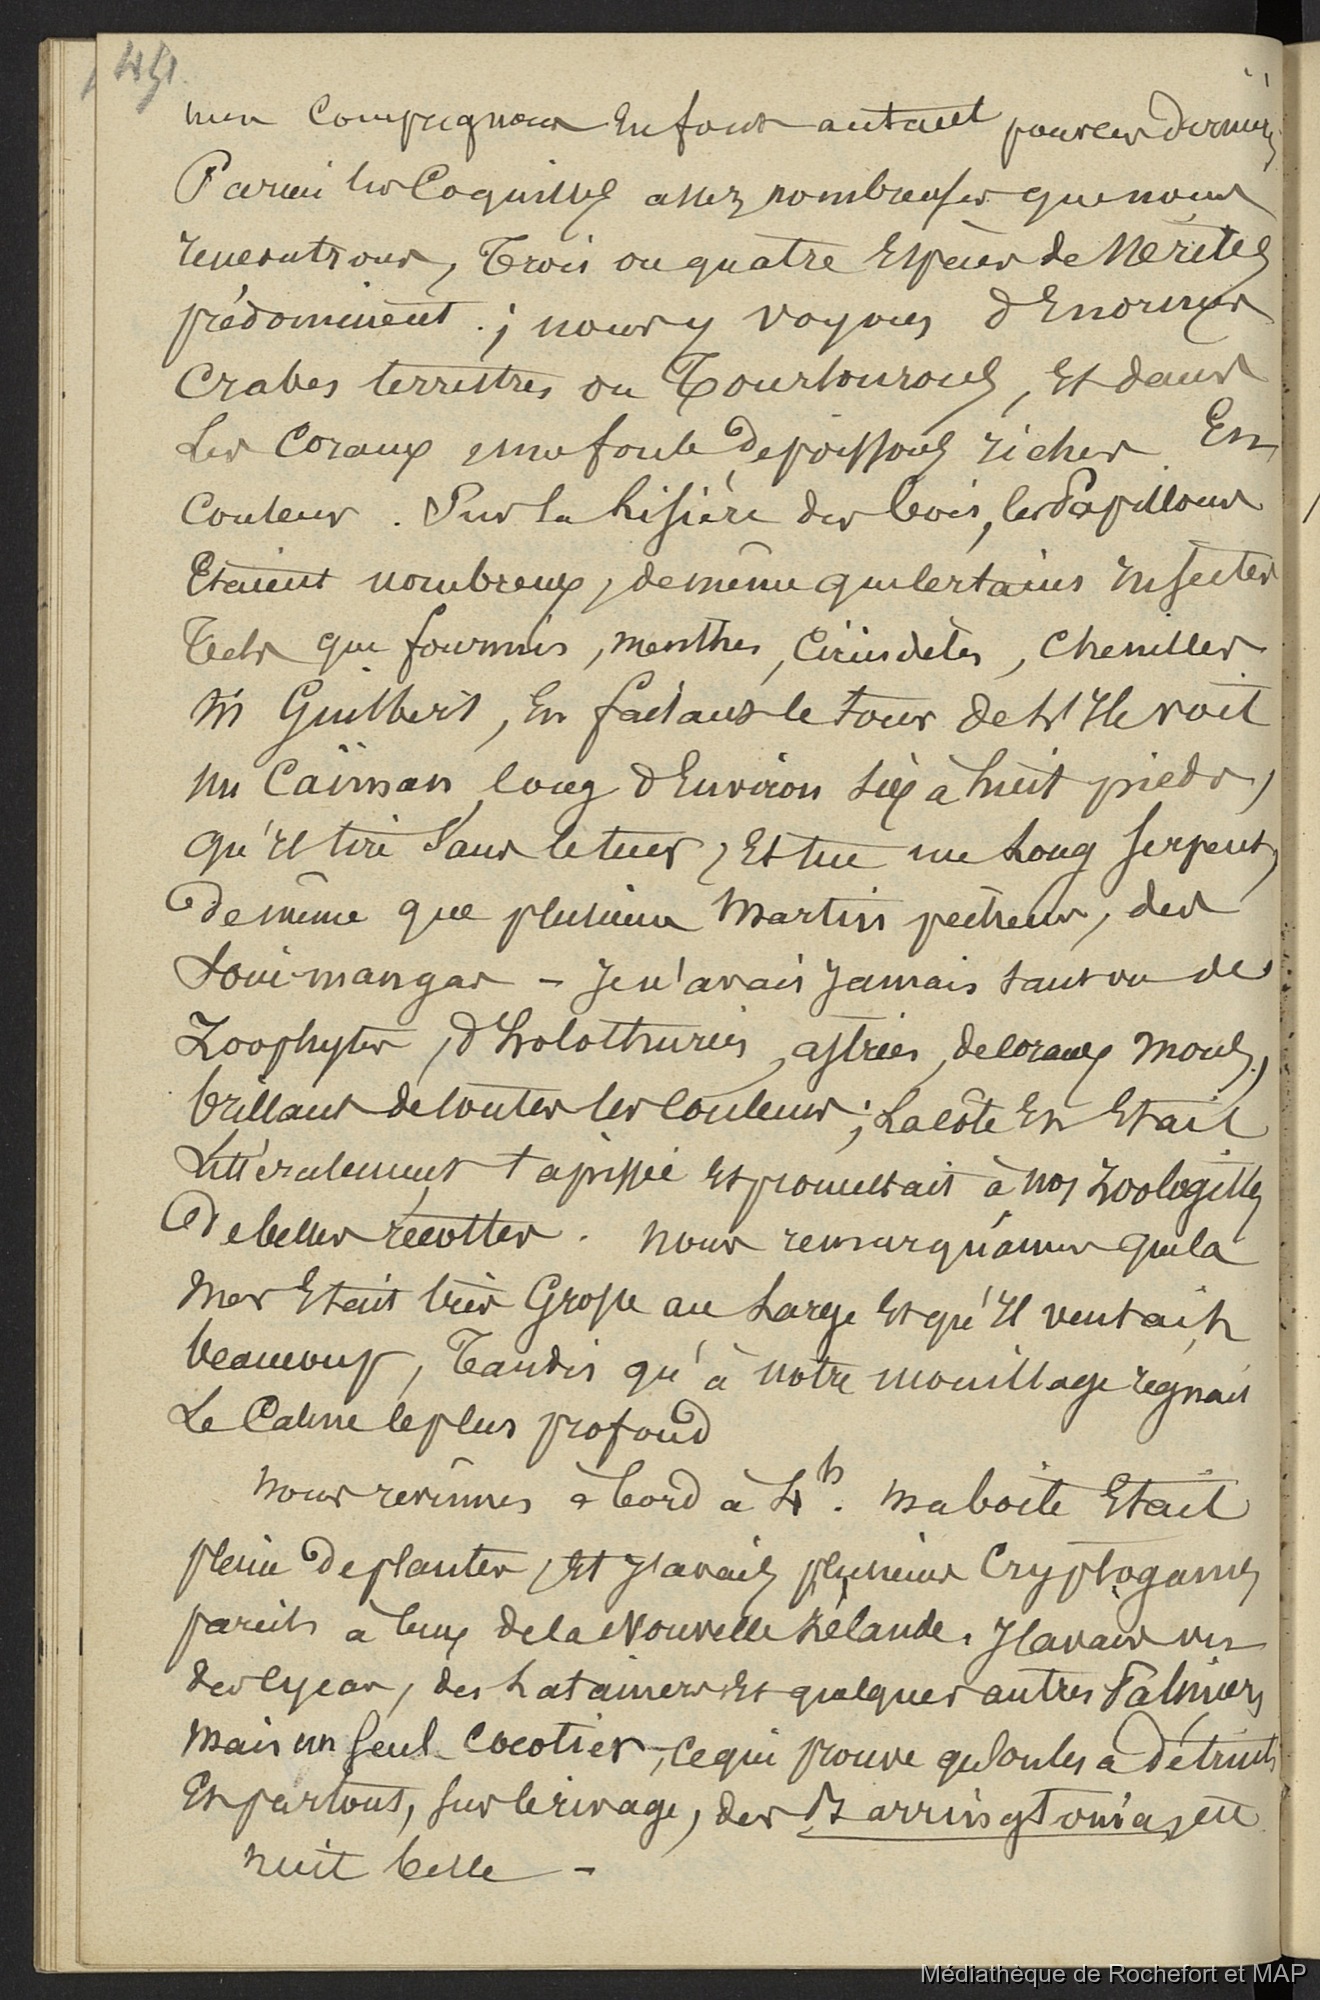 451
mes Compagnons En font autant pour ces derniers
Parmi les Coquilles assez nombreuses que nous
rencontrons, Trois ou quatre Espèces de Nérites
prédominent ; nous y voyons d'Enormes
Crabes terrestres ou Tourlourous, Et dans
Les Coraux une foule de poissons riches En
Couleur. Sur la Lisière des bois, les Papillons
Etaient nombreux, de même que Certains insectes
Tels que fourmis, menthes, Cicindèles, Chenilles
Mr Guilbert, En faisant le tour de l'Ile voit
un Caïman long d'Environ six à huit pieds,
qu'il tire Sans le tuer, Et tue un Long Serpent,
De même que plusieurs Martin pêcheurs, des
Soui-mangas - Je n'avais Jamais tant vu de
Zoophytes, d'holothuries, astries, de Coraux Mous,
brillant de toutes les Couleurs ; La côte En Etait
Littéralement tapissée Et promettait à nos Zoologistes
De belles récoltes. Nous remarquâmes que la
Mer Etait très Grosse au Large Et qu'Il ventait
beaucoup, Tandis qu'à notre mouillage régnait
Le Calme le plus profond
Nous revînmes à bord à 4h. Ma boite Etait
pleine De plantes, Et J'avais plusieurs Cryptogames
pareils à Ceux de la Nouvelle Zélande. J'avais vu
des Cycas, des Lataniers Et quelques autres Palmiers
Mais un Seul Cocotier, Ce qui prouve qu'on les a Détruits
Et partout, sur le rivage, des Barringtonias, ett
Nuit belle -
Médiathèque de Rochefort et MAP